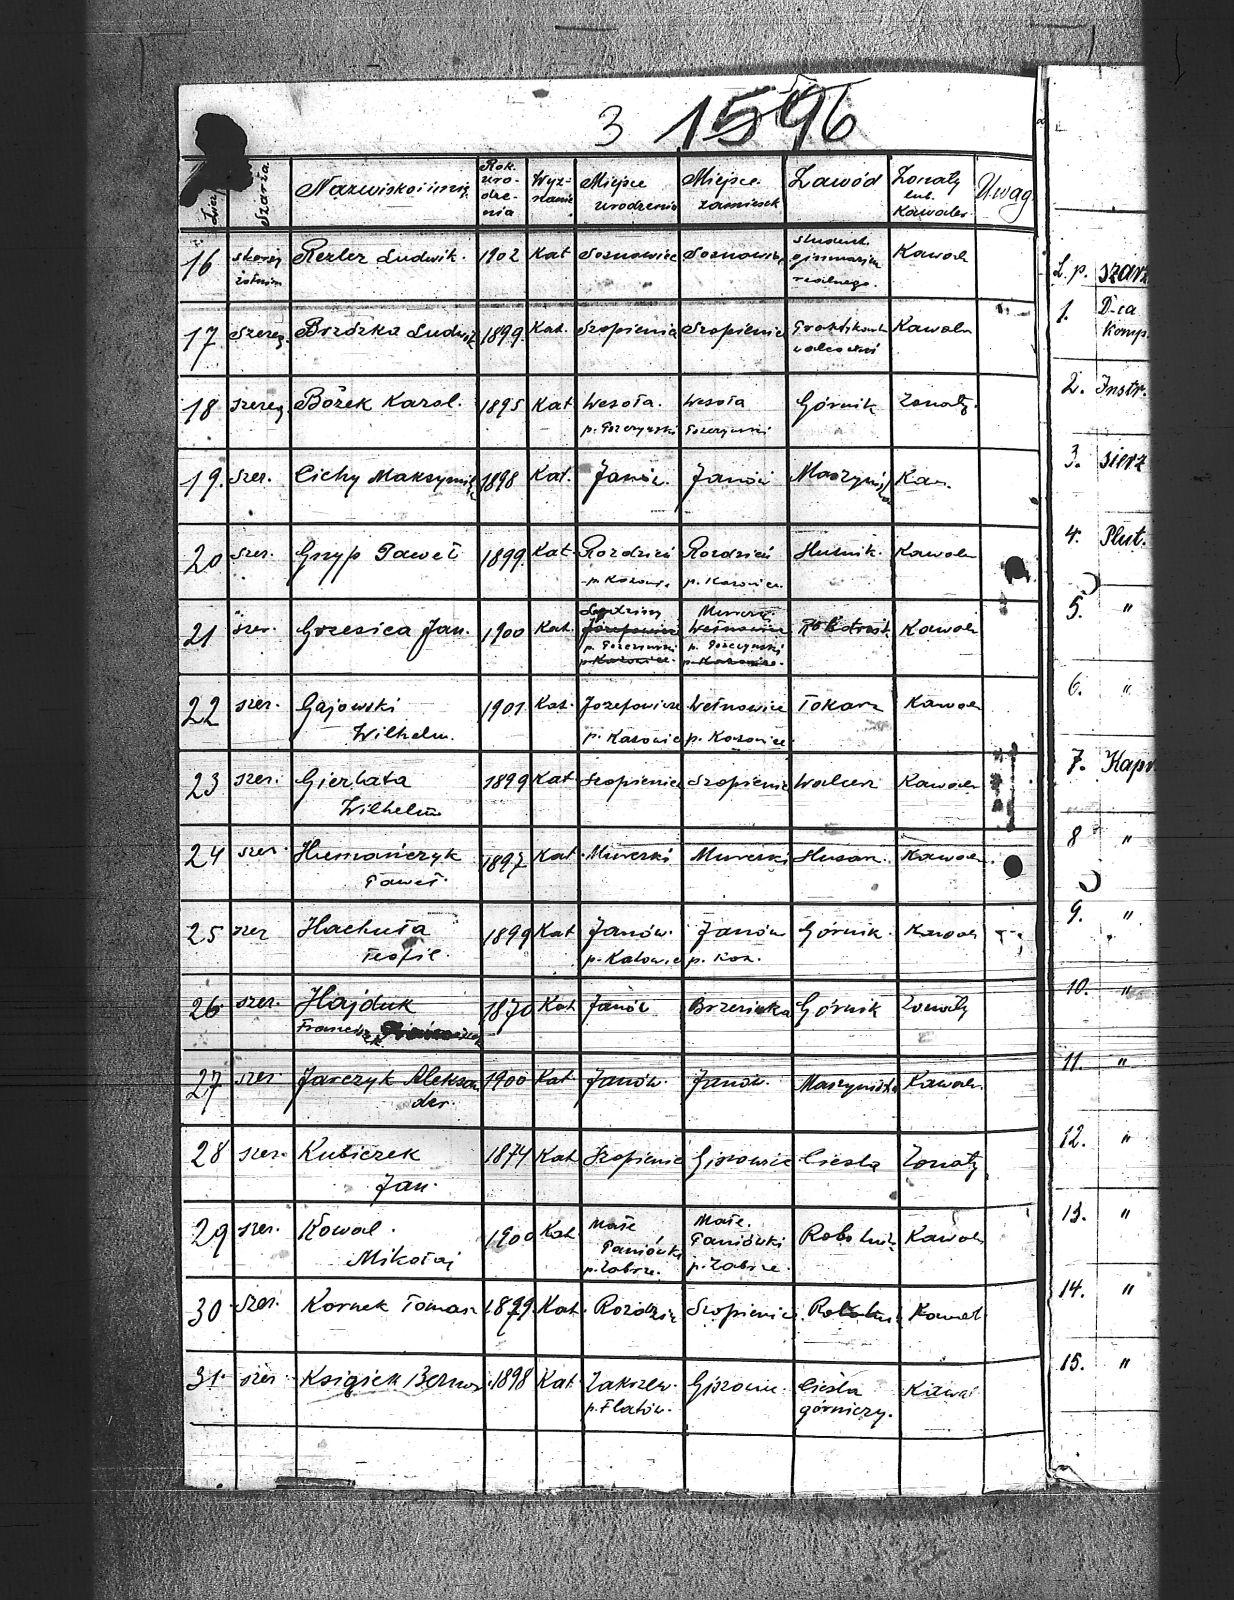 3 1596
Szarża. Nazwisko i imię. Rok uro-dze-nia Wyz-nanie Miejsce urodzenia Miejsce zamieszk Zawód Żonaty lub. Kawaler Uwag
16 Rezler Ludwik. 1902 Kat Sosnowiec Sosnowiec student gimnazju realnego. Kawal
17. Szereg. Brzózka Ludwik 1899. Kat. Szopienice Szopienice Kawaler
18 szereg. Bożek Karol. 1895 Kat Wesoła. Wesoła Górnik Żonaty.
19. szer. Cichy Maksymil 1898 Kat. Janów. Janów Maszynista Kaw.
20 szer. Gryp Paweł 1899. Kat Rozdzień p. Rozdzień p. Hutnik. Kawaler
21 szer. Grzesica Jan. 1900 Kat. Kawaler
22 szer. Gajowski Wilhelm. 1901 Kat. Józefowiec p. Katowice Wełnowiec p. Katowice Tokarz Kawaler
23 szer. Gierlata Wilhelm 1899 Kat Szopienice Szopienice Walcarz Kawaler
24 szer. Humańczyk Paweł. 1897 Kat. Murcki Murcki Kawaler.
25 szer Hachuła Teofil. 1899 Kat Janów. p. Katowice Janów p. Kat. Górnik. Kawaler
26 szer. Hajduk Francisz 1870 Kat Janów Brzezinka Górnik Żonaty
27 szer Jarczyk Aleksander. 1900 Kat. Janów. Janów. Maszynista Kawaler.
28 szer. Kubiczek Jan. 1874 Kat Szopienice Giszowiec Cieśla Żonaty
29 szer. Kowal. Mikołaj 1900 Kat. Małe Paniówki p. Zabrze. Małe. Paniówki p. Zabrze. Robotnik Kawaler
30 szer. Kornek Tomasz 1899. Kat. Rozdzin Szopienice Robotnik Kawal
31. szer. Książek Bernar. 1898 Kat. Zakrzew. p. Flatów. Giszowie. Cieśla górniczy. Kawal
L.p. szarż
1. D-ca komp.
2. Instr.
3. sierż
4. Plut.
5. "
6. "
7. Kapr.
8 "
9. "
10. "
11. "
12. "
13. "
14. "
15. "